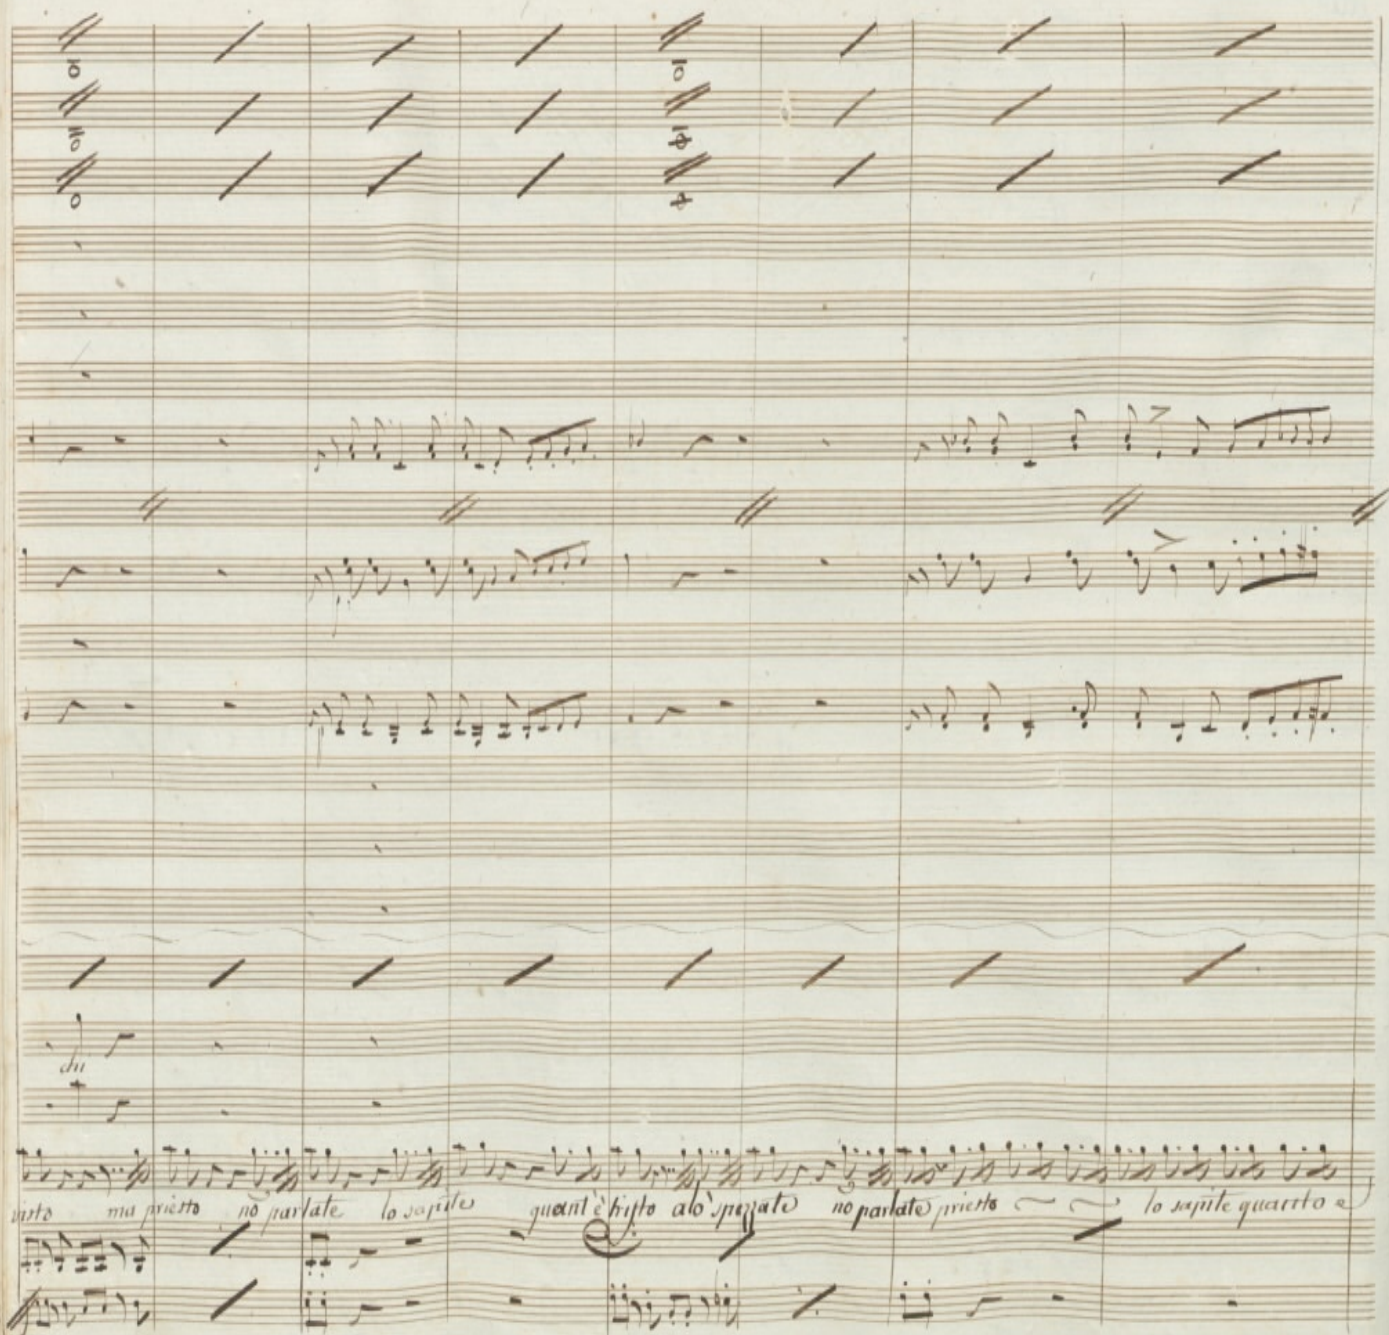 chi
visto ma priesto no parlate lo sapite quant'è tristo alò spezzate no parlate priesto lo sapite quanto e